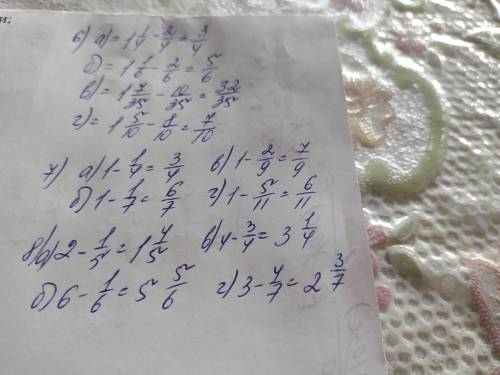 6) а) = 1 1/4 - 2/4 = 3/4
б) = 1 1/6 - 2/6 = 5/6
в) = 1 7/35 - 10/35 = 32/35
г) = 1 5/10 - 8/10 = 7/10
7) а) 1 - 1/4 = 3/4 в) 1 - 2/9 = 7/9
б) 1 - 1/7 = 6/7 г) 1 - 5/11 = 6/11
8) а) 2 - 1/5 = 1 4/5 в) 4 - 3/4 = 3 1/4
б) 6 - 1/6 = 5 5/6 г) 3 - 4/7 = 2 3/7